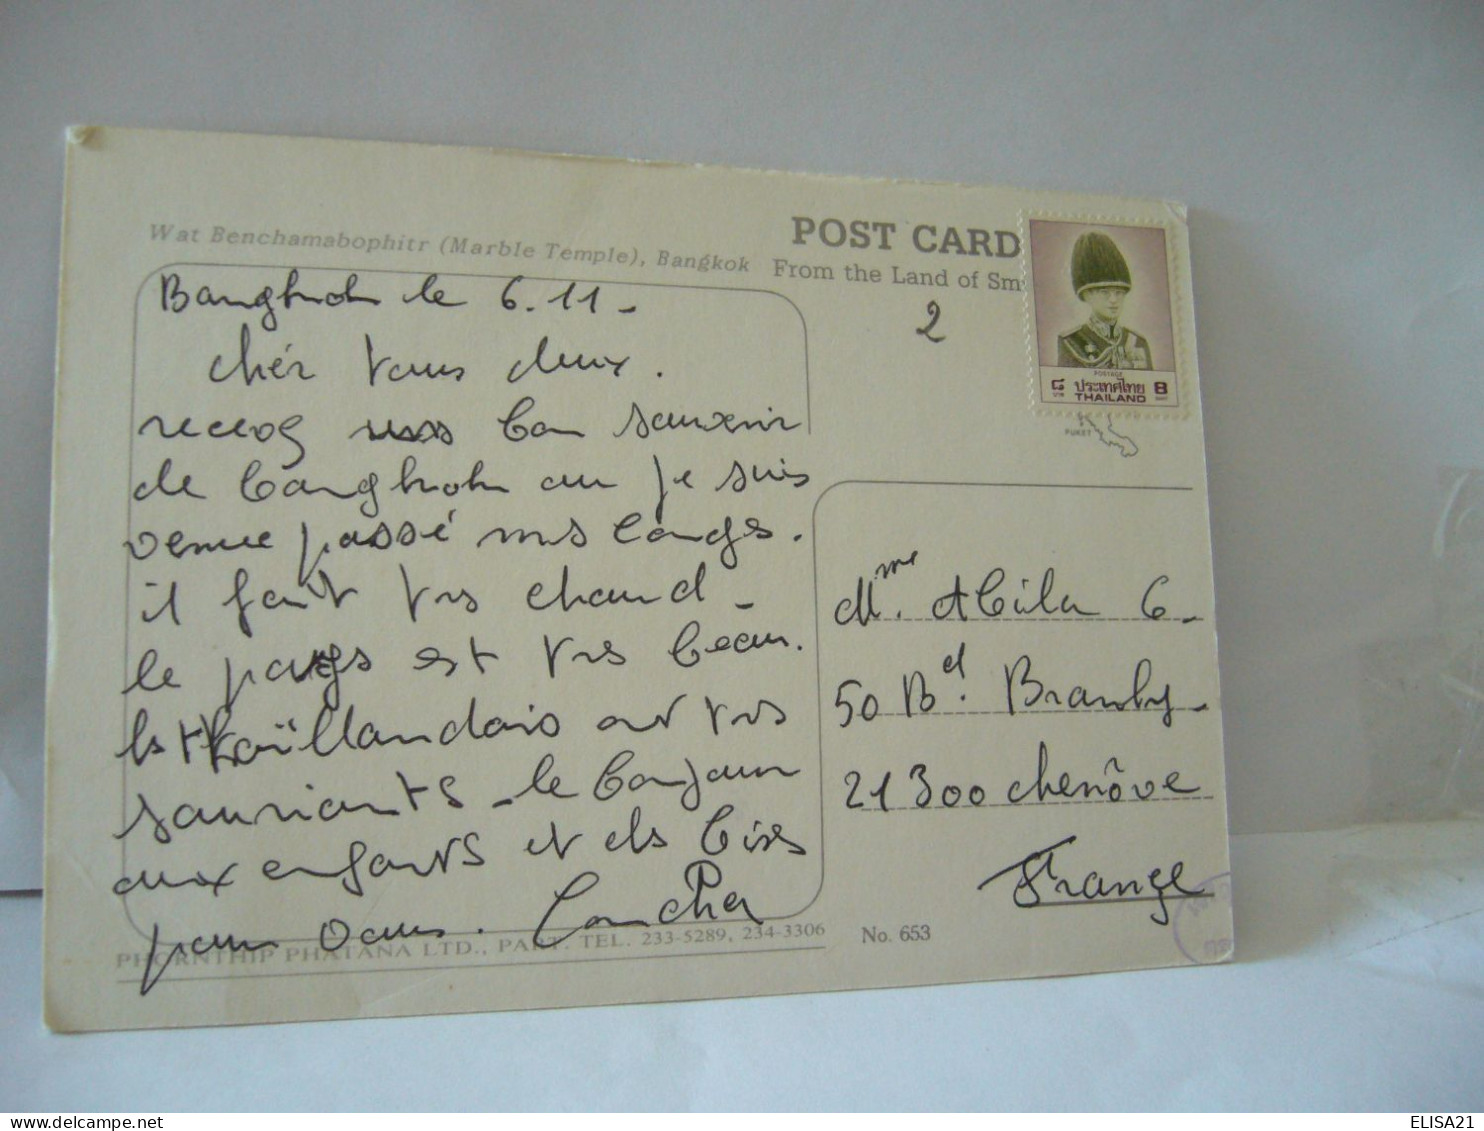 Wat Benchamabophitr (Marble Temple), Bangkok
POST CARD
From the Land of Sm
2
POSTAGE
๘ 8
บาท BAHT
ประเทศไทย
THAILAND
PUKET
Bangkok le 6.11_
cher tous deux.
recevez un bon souvenir
de bangkok ou je suis
venue passé mes congs.
il fait trs chaud_
le pays est trs beau.
ls thaïllandais ont trs
souriants_le bonjour
aux enfants et ds bises
pour vous. Concha
Mme. Abila C_
50 Bd. Branly_
21300 chenôve
France
PHORNTHIP PHATANA LTD., PART. TEL. 233-5289, 234-3306
No. 653
ELISA21